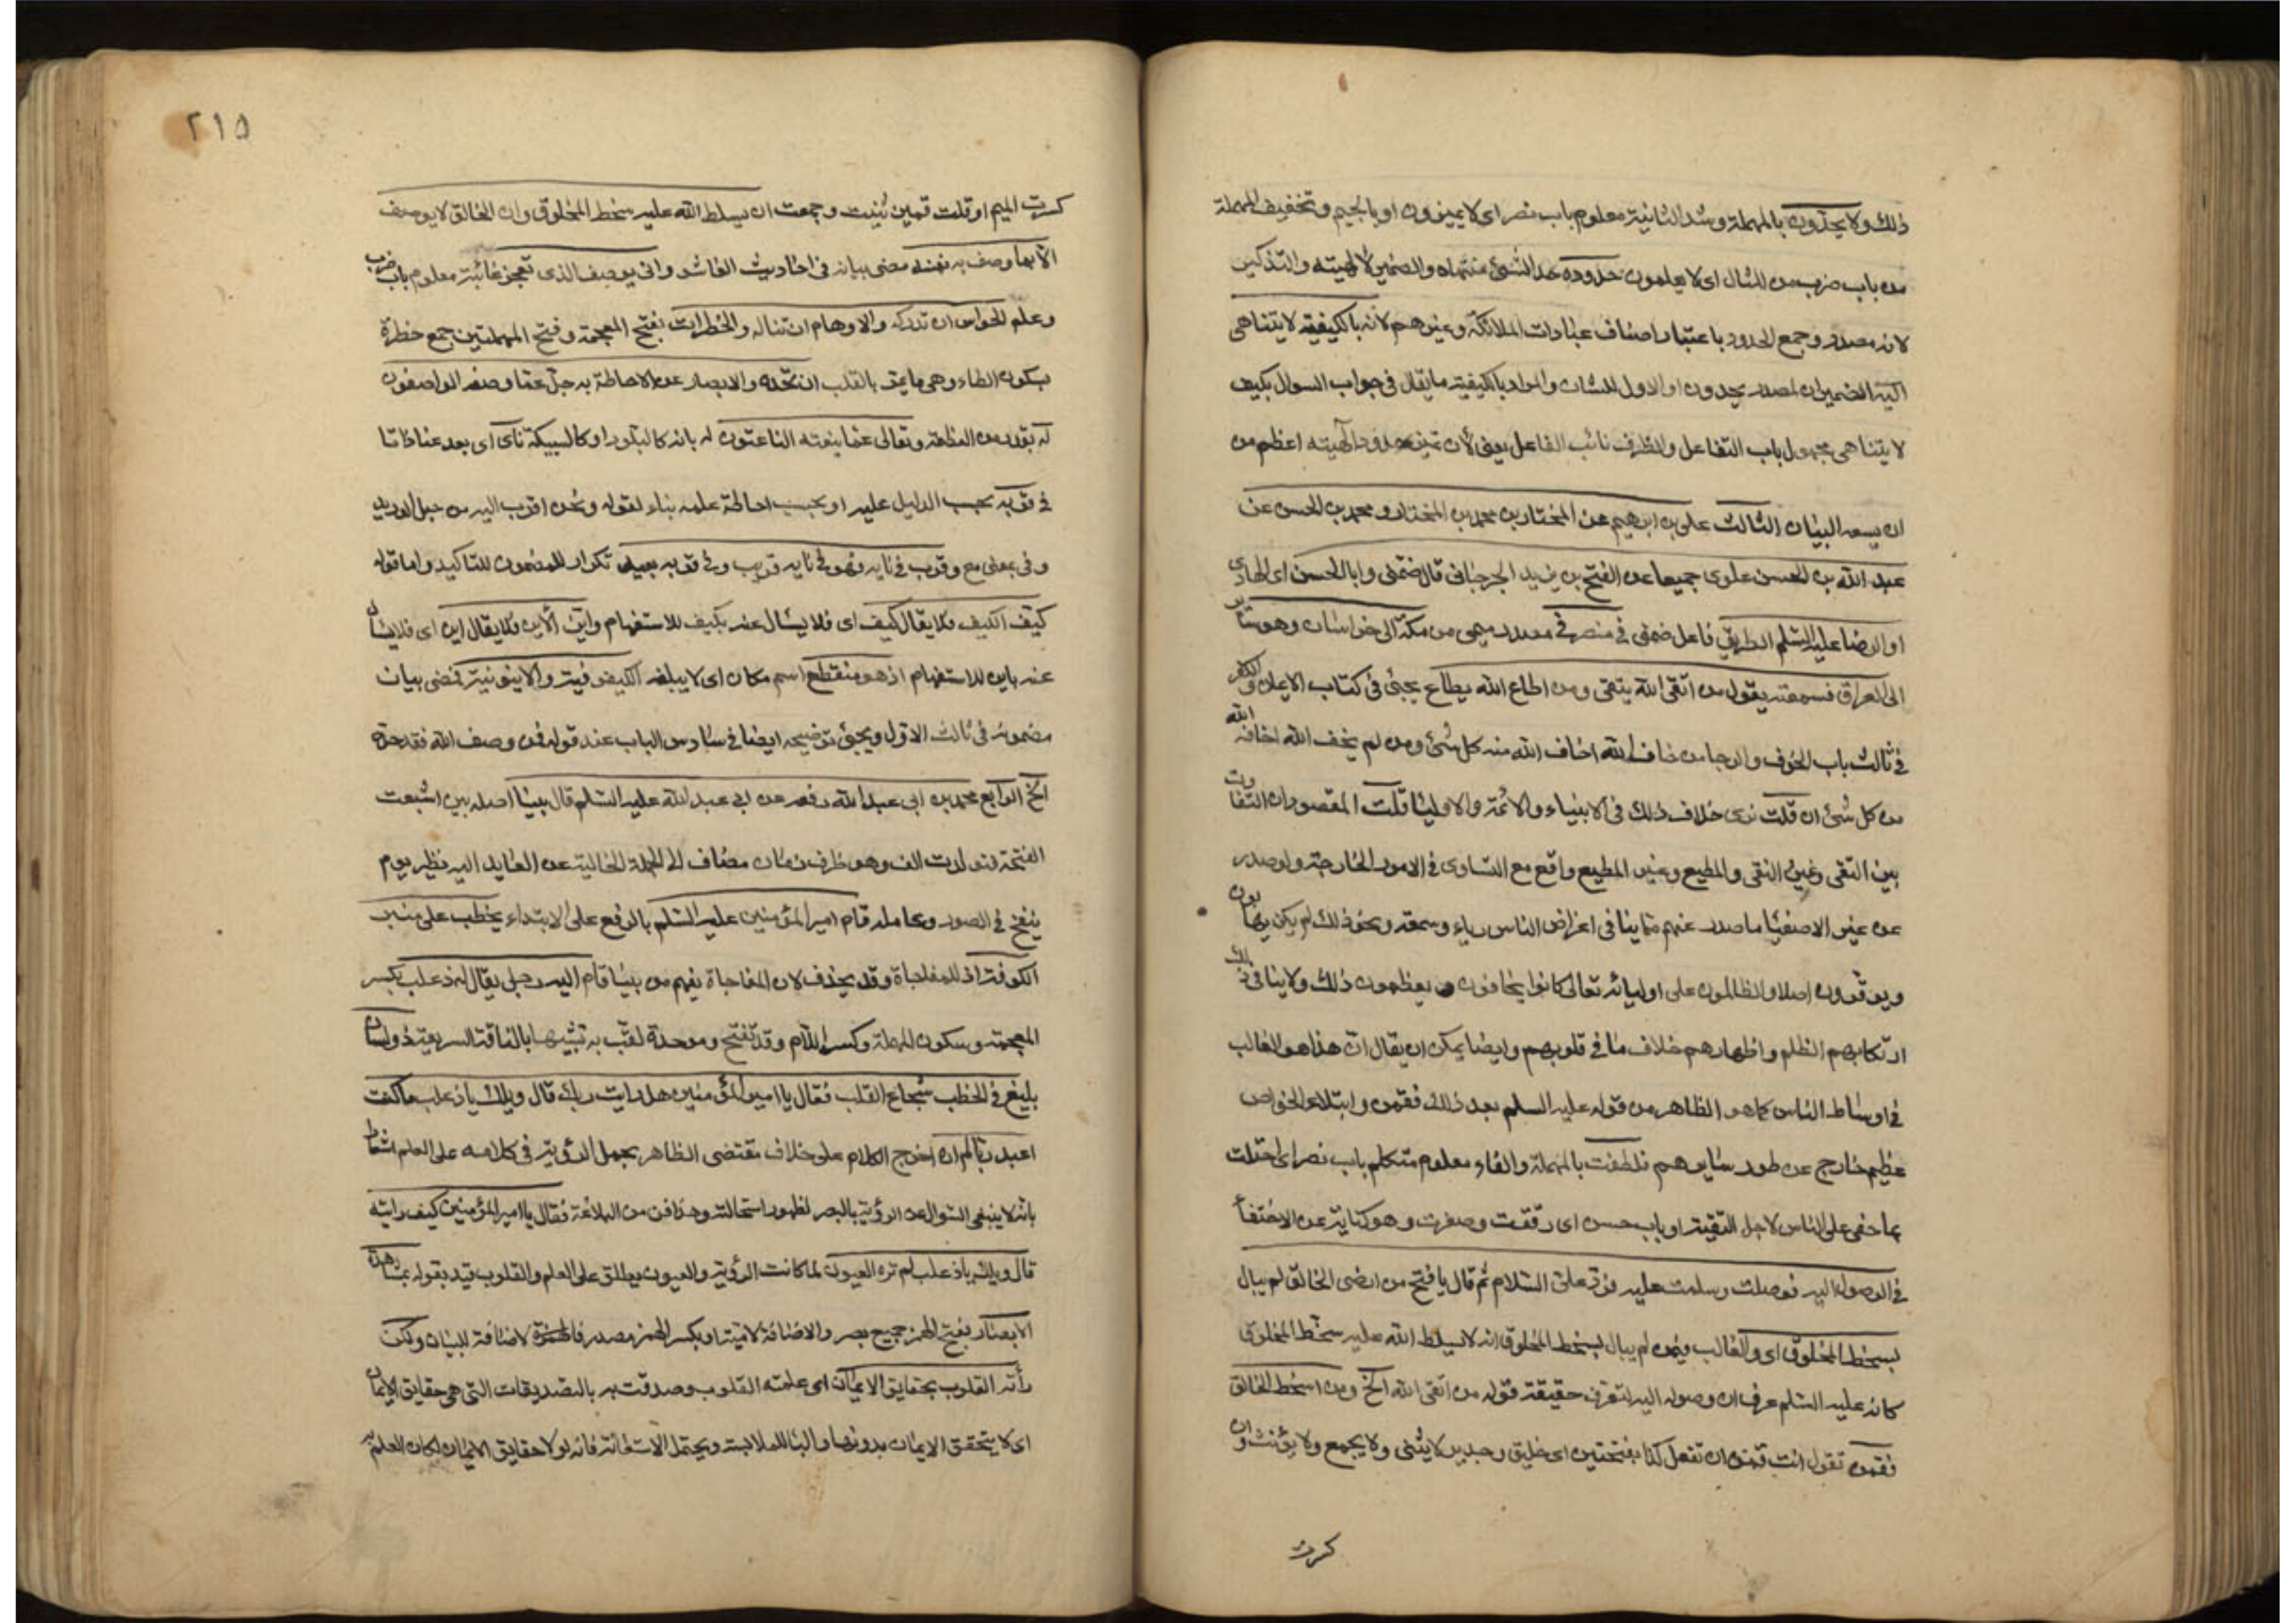 ذلك ولا يحدّون بالمهملة وشد الثانية معلوم باب نصر اى لا يميزون او بالجيم وتخفيف المهملة
من باب ضرب من المثال اى لا يعلمون حدوده حد الشئ منتهاه والضمير لالهيته والتذكير
لانه مصدر وجمع الحدود باعتبار اصناف عبادات الملائكة وغيرهم لانه بالكيفية لا يتناهى
اليه الضميران لمصدر يحدون او الاول للشان والمراد بالكيفية ما يقال فى جواب السوال بكيف
لا يتناهى مجهول باب التفاعل والظرف نائب الفاعل يعنى لان حدود الهيته اعظم من
ان يسعه البيان الثالث على بن ابرهيم عن المختار بن محمد بن المختار ومحمد بن الحسن عن
عبد الله بن الحسن علوى جميعا عن الفتح بن يزيد الجرجانى قال ضمّنى وابا الحسن اى الهادى
او الرضا عليه السّلم الطريق فاعل ضمنى فى منصرفى مصدر ميمى من مكّة الى خراسان وهو سائر
الى العراق فسمعته يقول من اتقى الله يتقى ومن اطاع الله يطاع يجئ فى كتاب الايمان والكفر
فى ثالث باب الخوف والرجا من خاف الله اخاف الله منه كل شئ ومن لم يخف الله اخافه الله
من كل شئ ان قلت نرى خلاف ذلك فى الانبياء والائمّة والاوليا قلت المقصود ان التفاوت
بين التقى وغير التقى والمطيع وغير المطيع واقع مع التساوى فى الامور الخارجة ولو صدر
عن غير الاصفيا ما صدر عنهم مما ينافى اغراض الناس رياء وسمعة ونحو ذلك لم يكن يهابون
ويوقّرون اصلا والظالمون على اوليائه تعالى كانوا يخافون و يعظمون ذلك ولا ينافى ذلك
ارتكابهم الظلم واظهارهم خلاف ما فى قلوبهم وايضا يمكن ان يقال ان هذا هو الغالب
فى اوساط الناس كما هو الظاهر من قوله عليه السلم بعد ذلك فقمن وابتلاء الخواص
عظيم خارج عن طور سايرهم فلطفت بالمهملة والفاء معلوم متكلم باب نصر اى احتلت
بما خفى على الناس لاجل التقية او باب حسن اى رققت وصغرت وهو كناية عن الاختفاء
فى الوصول اليه فوصلت وسلمت عليه فرد على السّلام ثم قال يا فتح من ارضى الخالق لم يبال
بسخط المخلوق اى والغالب فيمن لم يبال بسخط المخلوق انه لا يسلط الله عليه سخط المخلوق
كانه عليه السّلم عرف ان وصوله اليه لتعرف حقيقة قوله من اتقى الله الخ ومن اسخط الخالق
فقمن تقول انت قمن ان تفعل كذا بفتحتين اى خليق وجدير لا يثنى ولا يجمع ولا يؤنث وان
كسرت
٢١٥
كسرت الميم او قلت قمين ثنيت وجمعت ان يسلط الله عليه سخط المخلوق وان الخالق لا يوصف
الا بما وصف به نفسه مضى بيانه فى احاديث العاشر وانى يوصف الذى تعجز غائبة معلوم باب ضرب
وعلم الحواس ان تدركه والاوهام ان تناله والخطرات بفتح المعجمة وفتح المهملتين جمع خطرة
بسكون الطاء وهى ما يمرّ بالقلب ان تحدّه والابصار عن الاحاطة به جلّ عمّا وصفه الواصفون
له بقدر من العظمة وتعالى عمّا ينعته الناعتون له بانه كالبلور او كالسبيكة ناى اى بعد عنا ذاتا
فى قربه بحسب الدليل عليه او بحسب احاطة علمه بناء لقوله ونحن اقرب اليه من حبل الوريد
وفى بمعنى مع وقرب فى نايه فهو فى نايه قريب وفى قربه بعيد تكرار للمضمون للتاكيد واما قوله
كيّف الكيف فلا يقال كيف اى فلا يسال عنه بكيف للاستفهام وايّن الاين فلا يقال اين اى فلا يسال
عنه باين للاستفهام اذ هو منقطع اسم مكان اى لا يبلغه الكيفوفية والاينونية فمضى بيان
مضمونه فى ثالث الاوّل ويجئ توضيحه ايضا فى سادس الباب عند قوله فمن وصف الله فقد حدّه
الخ الرابع محمد بن ابى عبد الله رفعه عن ابى عبد الله عليه السّلم قال بينا اصله بين اشبعت
الفتحة فتولدت الف وهو ظرف زمان مضاف الى الجملة الخالية عن العايد اليه نظير يوم
ينفخ فى الصور وعامله قام امير المؤمنين عليه السّلم بالرفع على الابتداء يخطب على منبر
الكوفة اذ للمفاجاة وقد يحذف لان المفاجاة يفهم من بينا قام اليه رجل يقال له ذعلب بكسر
المعجمة وسكون المهملة وكسر اللّام وقد تفتح وموحدة لقّب به تشبيها بالناقة السريعة ذو لسان
بليغ فى الخطب شجاع القلب فقال يا امير المؤمنين هل رايت ربك قال ويلك يا ذعلب ما كنت
اعبد ربا لم اره اخرج الكلام على خلاف مقتضى الظاهر بحمل الرؤية فى كلامه على العلم اشعارا
بانه لا ينبغى السّوال عن الرؤية بالبصر لظهور استحالته وهذا فن من البلاغة فقال يا امير المؤمنين كيف رايته
قال ويلك يا ذعلب لم تره العيون لما كانت الرؤية والعيون يطلق على العلم والقلوب قيد بقوله بمشاهدة
الابصار بفتح الهمز جميع بصر والاضافة لامية او بكسر الهمز مصدر فالاضافة للبيان ولكن
رأته القلوب بحقايق الايمان اى علمته القلوب وصدقت به بالتصديقات التى هى حقايق الايمان
اى لا يتحقق الايمان بدونها والباء للملابسة ويحتمل الاستعانة فانه لولا حقايق الايمان لكان العلم به